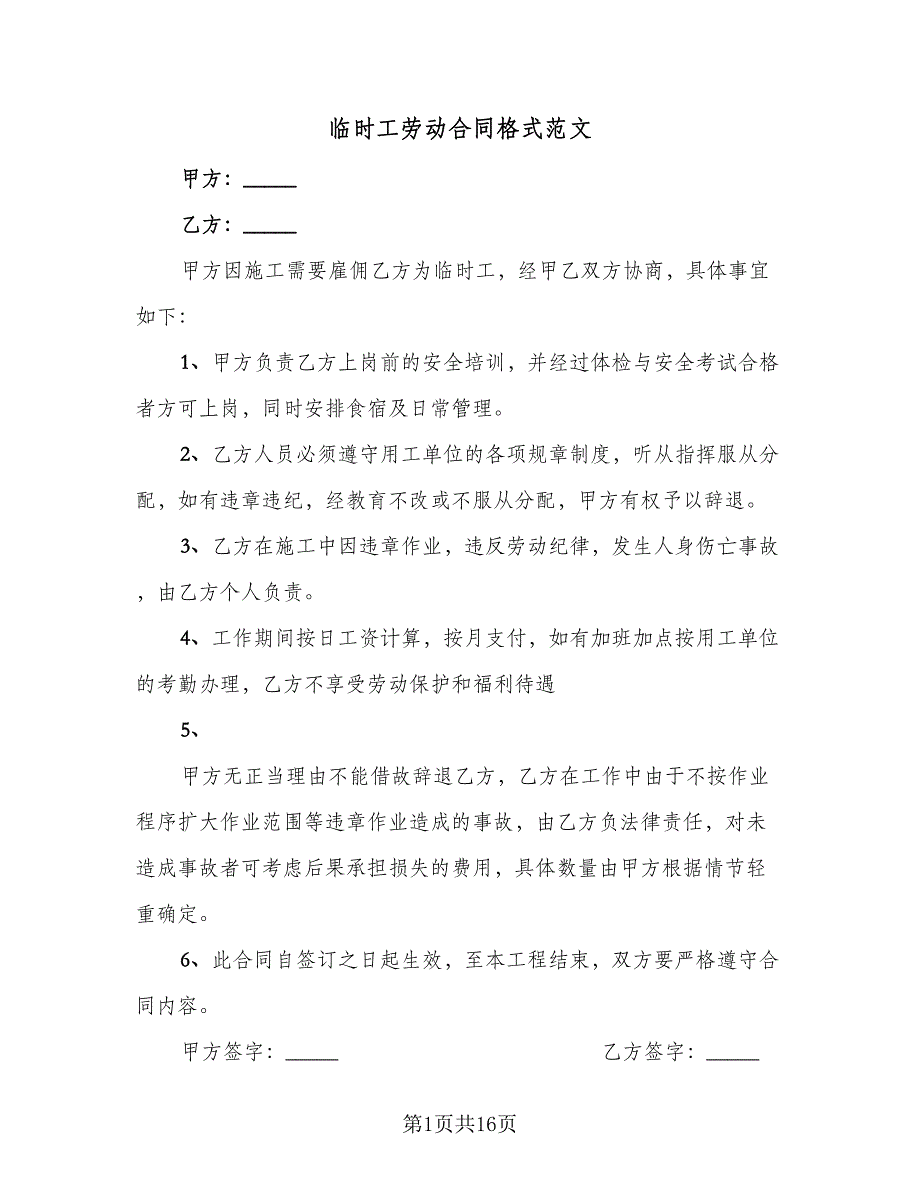 临时工劳动合同格式范文
甲方：_____
乙方：_____
甲方因施工需要雇佣乙方为临时工，经甲乙双方协商，具体事宜
如下：
1、甲方负责乙方上岗前的安全培训，并经过体检与安全考试合格
者方可上岗，同时安排食宿及日常管理。
2、乙方人员必须遵守用工单位的各项规章制度，听从指挥服从分
配，如有违章违纪，经教育不改或不服从分配，甲方有权予以辞退。
3、乙方在施工中因违章作业，违反劳动纪律，发生人身伤亡事故
，由乙方个人负责。
4、工作期间按日工资计算，按月支付，如有加班加点按用工单位
的考勤办理，乙方不享受劳动保护和福利待遇
5、
甲方无正当理由不能借故辞退乙方，乙方在工作中由于不按作业
程序扩大作业范围等违章作业造成的事故，由乙方负法律责任，对未
造成事故者可考虑后果承担损失的费用，具体数量由甲方根据情节轻
重确定。
6、此合同自签订之日起生效，至本工程结束，双方要严格遵守合
同内容。
甲方签字：_____ 乙方签字：_____
第1页共16页